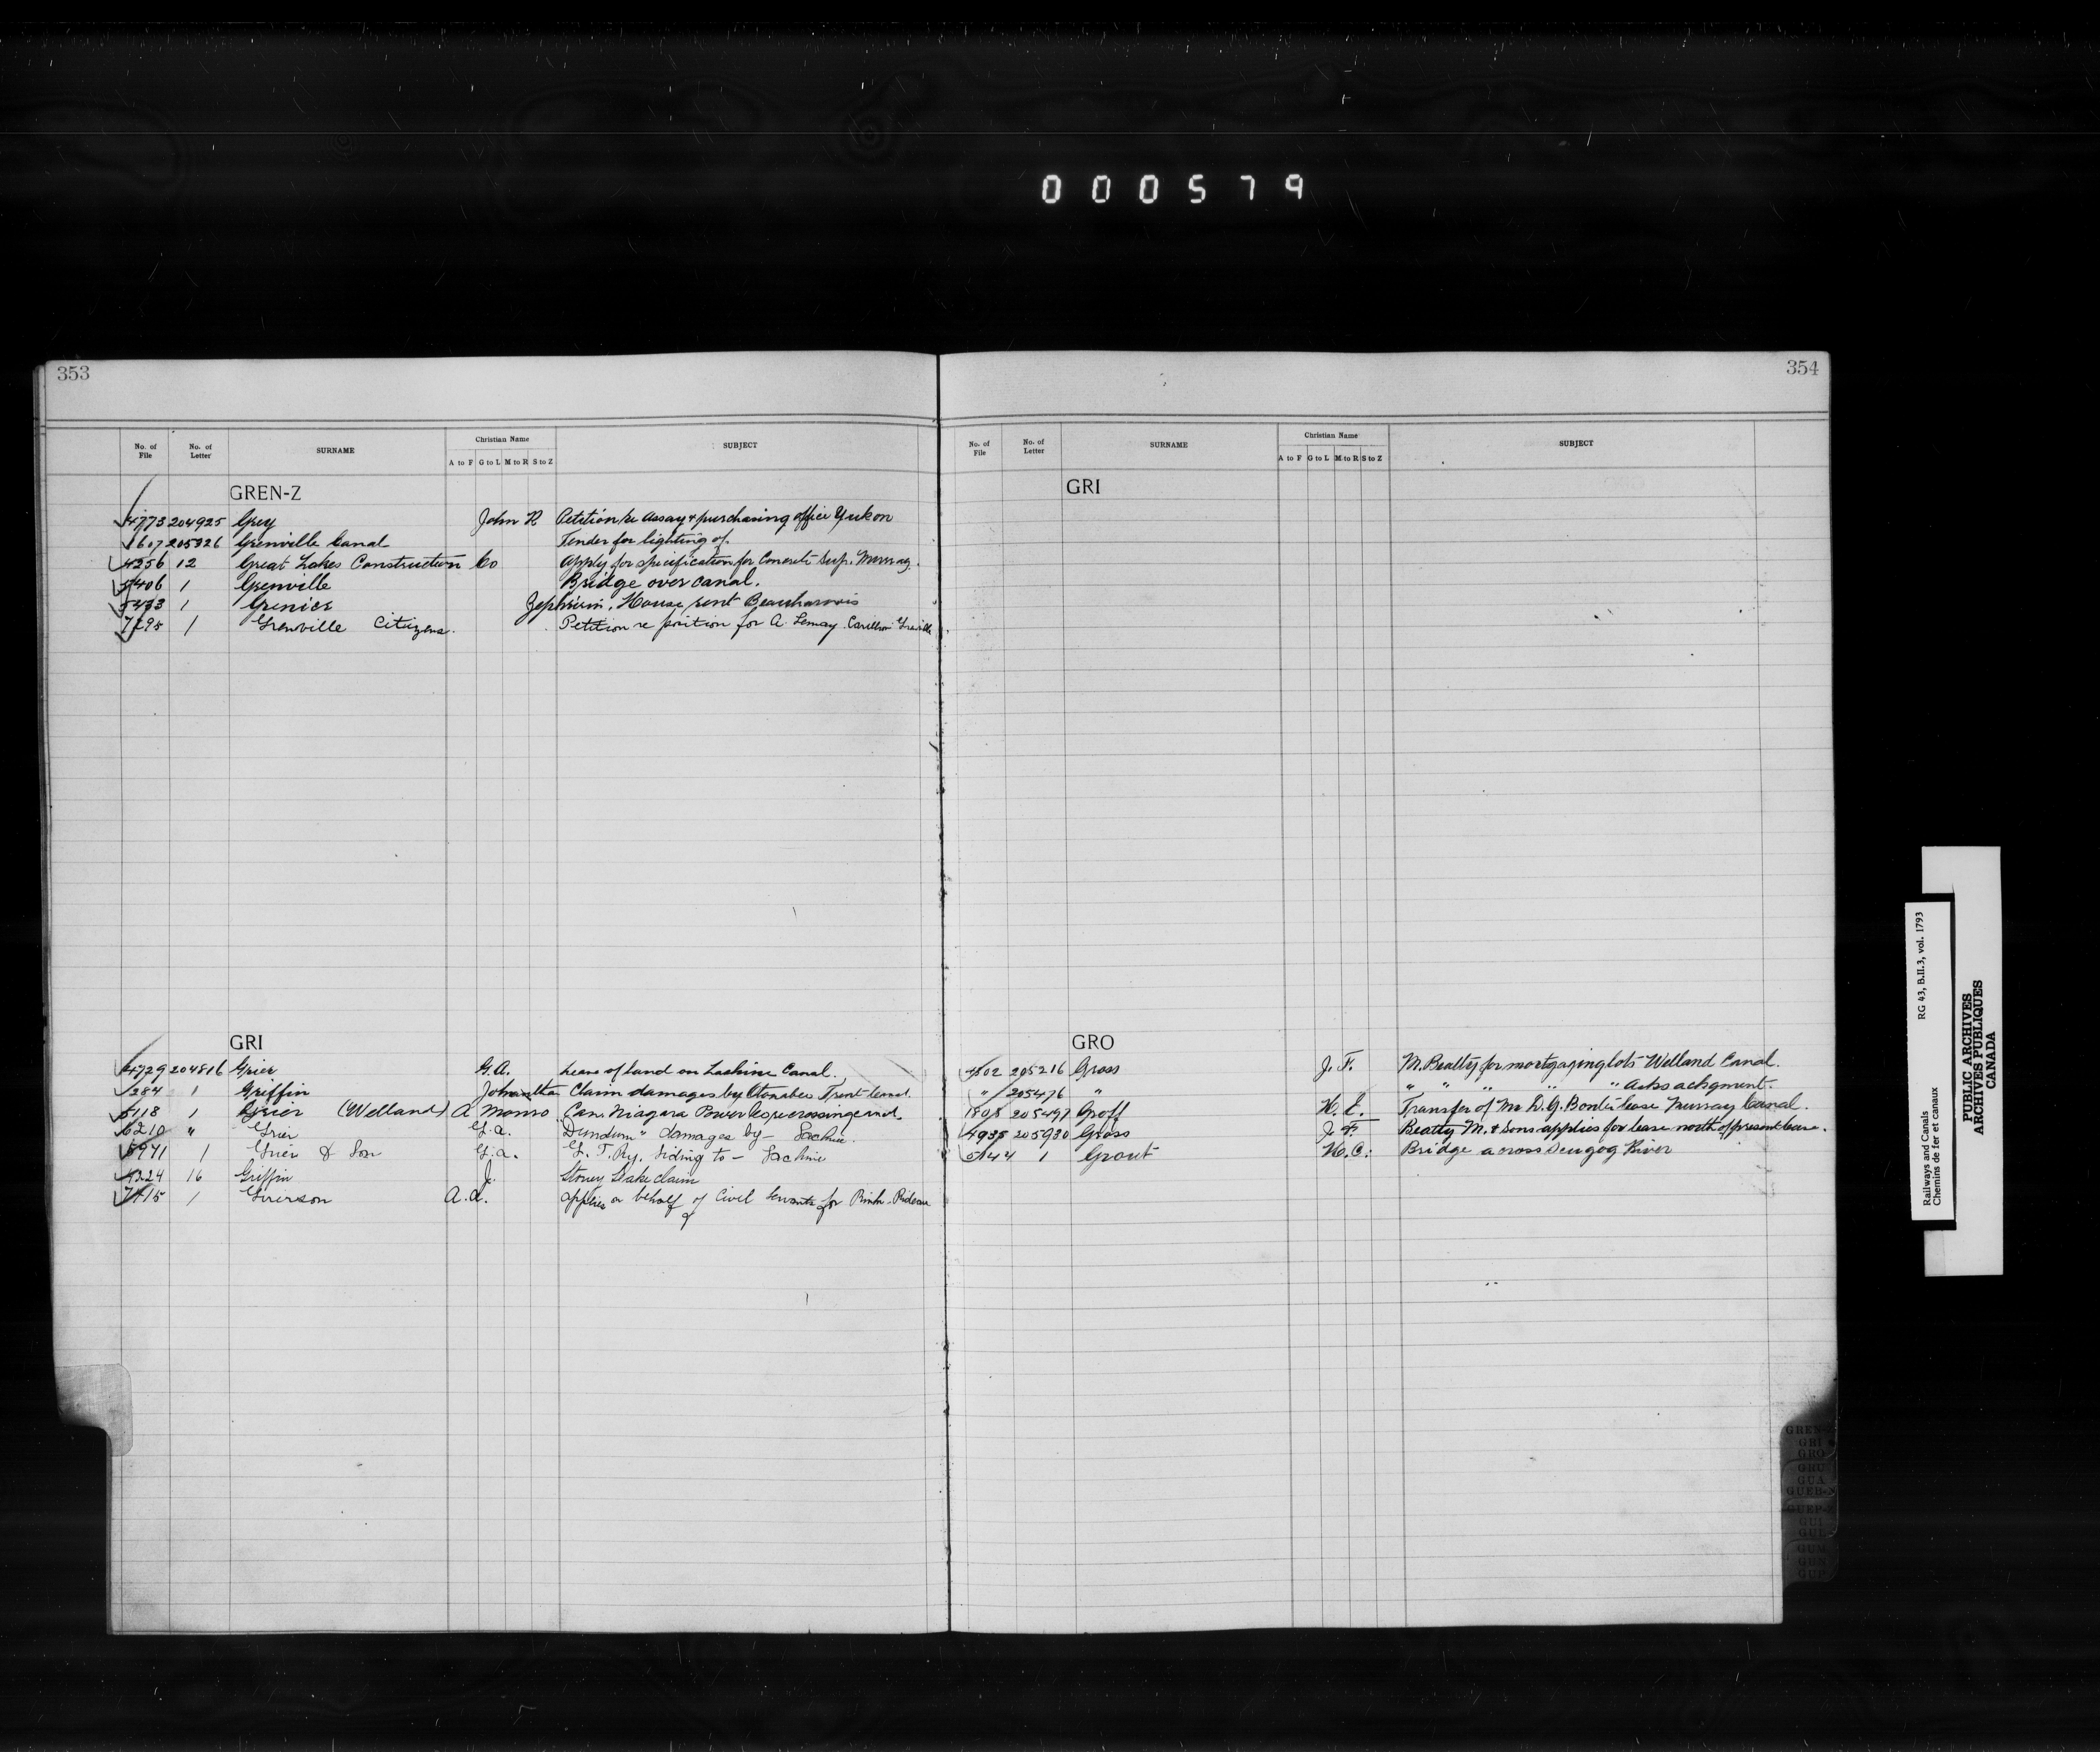 000579
353
No. of File No. of Letter SURNAME Christian Name A to F G to L M to R S to Z SUBJECT
GREN-Z
4773 204925 Grey John R Petition re Assay & purchasing office Yukon
1607 205826 Grenville Canal Tender for lighting of
4256 12 Great Lakes Construction Co Apply for specification for Concrete Sup. Murray.
5406 1 Grenville Bridge over canal.
5433 1 Grenier House rent Beauharnois
7295 1 Grenville Citizens. Petition re position for A. Lemay Carillon Grenville
GRI
4729 204816 Grier G.A. Lease of land on Lachine Canal.
1 Griffin Claim damages by Otonabee Trent Canal.
5118 1 Grier (Welland) A Monro Can. Niagara Power
6210 " Grier G.A. Dundurn" damages by - Lachine.
5941 1 Grier & Son G.A. G. T. Ry. Siding to - Lachine
4224 16 Griffin J. Stoney Lake claim
7415 1 Grierson A.A. applies on behalf of Civil Servants for Rink. Rideau
354
No. of File No. of Letter SURNAME Christian Name A to F G to L M to R S to Z SUBJECT
GRI
GRO
4802 205216 Gross J. F. M. Beatty for mortgaging lots Welland Canal.
" 205476 " " " " " " Asks achgment.
1808 205497 Groff H. E. Transfer of Mr lease Murray Canal.
4935 205930 Gross J. F. Beatty M. & Sons applies for lease north of present lease.
5144 1 Grout H.C. Bridge across Scugog River
GREN-Z
GRI
GRO
GRU
GUA
GUI
GUL
GUM
GUN
GUP
Railways and Canals RG 43, B.II.3, vol. 1793
Chemins de fer et canaux
PUBLIC ARCHIVES
ARCHIVES PUBLIQUES
CANADA